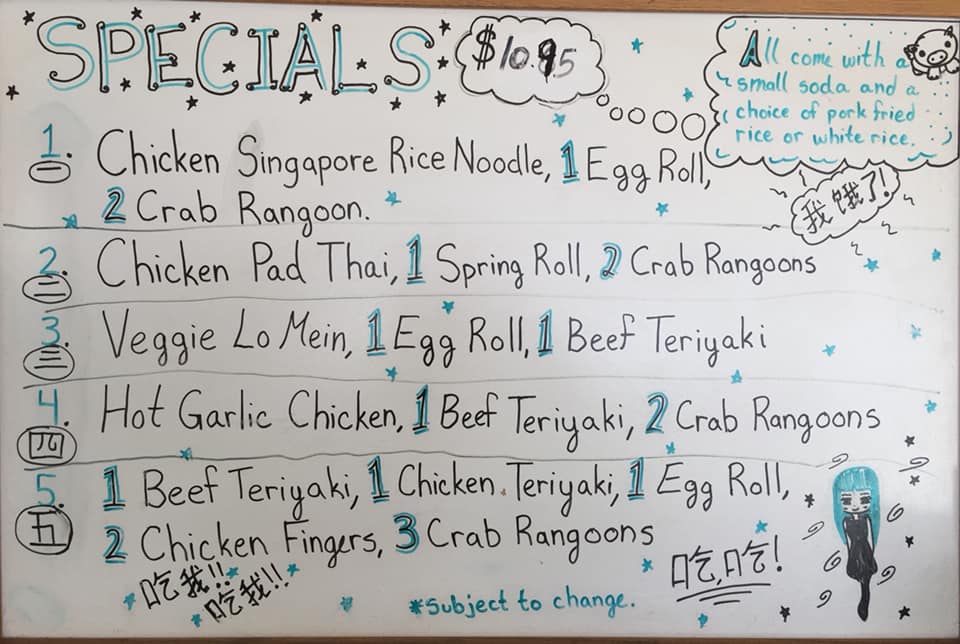 SPECIALS
$10.95
All come with a
small soda and a
choice of pork fried
rice or white rice.
我饿了!
1. Chicken Singapore Rice Noodle, 1 Egg Roll,
一 2 Crab Rangoon.
2. Chicken Pad Thai, 1 Spring Roll, 2 Crab Rangoons
二
3. Veggie Lo Mein, 1 Egg Roll, 1 Beef Teriyaki
三
4. Hot Garlic Chicken, 1 Beef Teriyaki, 2 Crab Rangoons
四
5. 1 Beef Teriyaki, 1 Chicken Teriyaki, 1 Egg Roll,
五 2 Chicken Fingers, 3 Crab Rangoons
吃我!!
吃我!!
吃,吃!
*Subject to change.